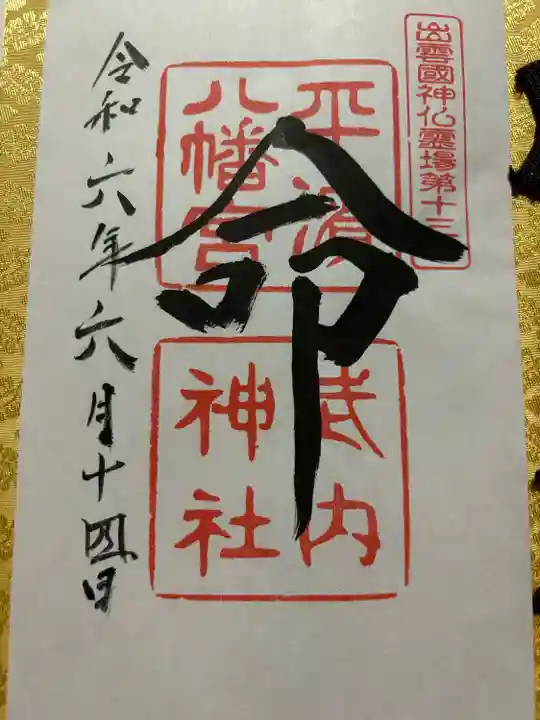 出雲國神仏霊場第十三
平濱
八幡宮
武内
神社
命
令和六年六月十四日